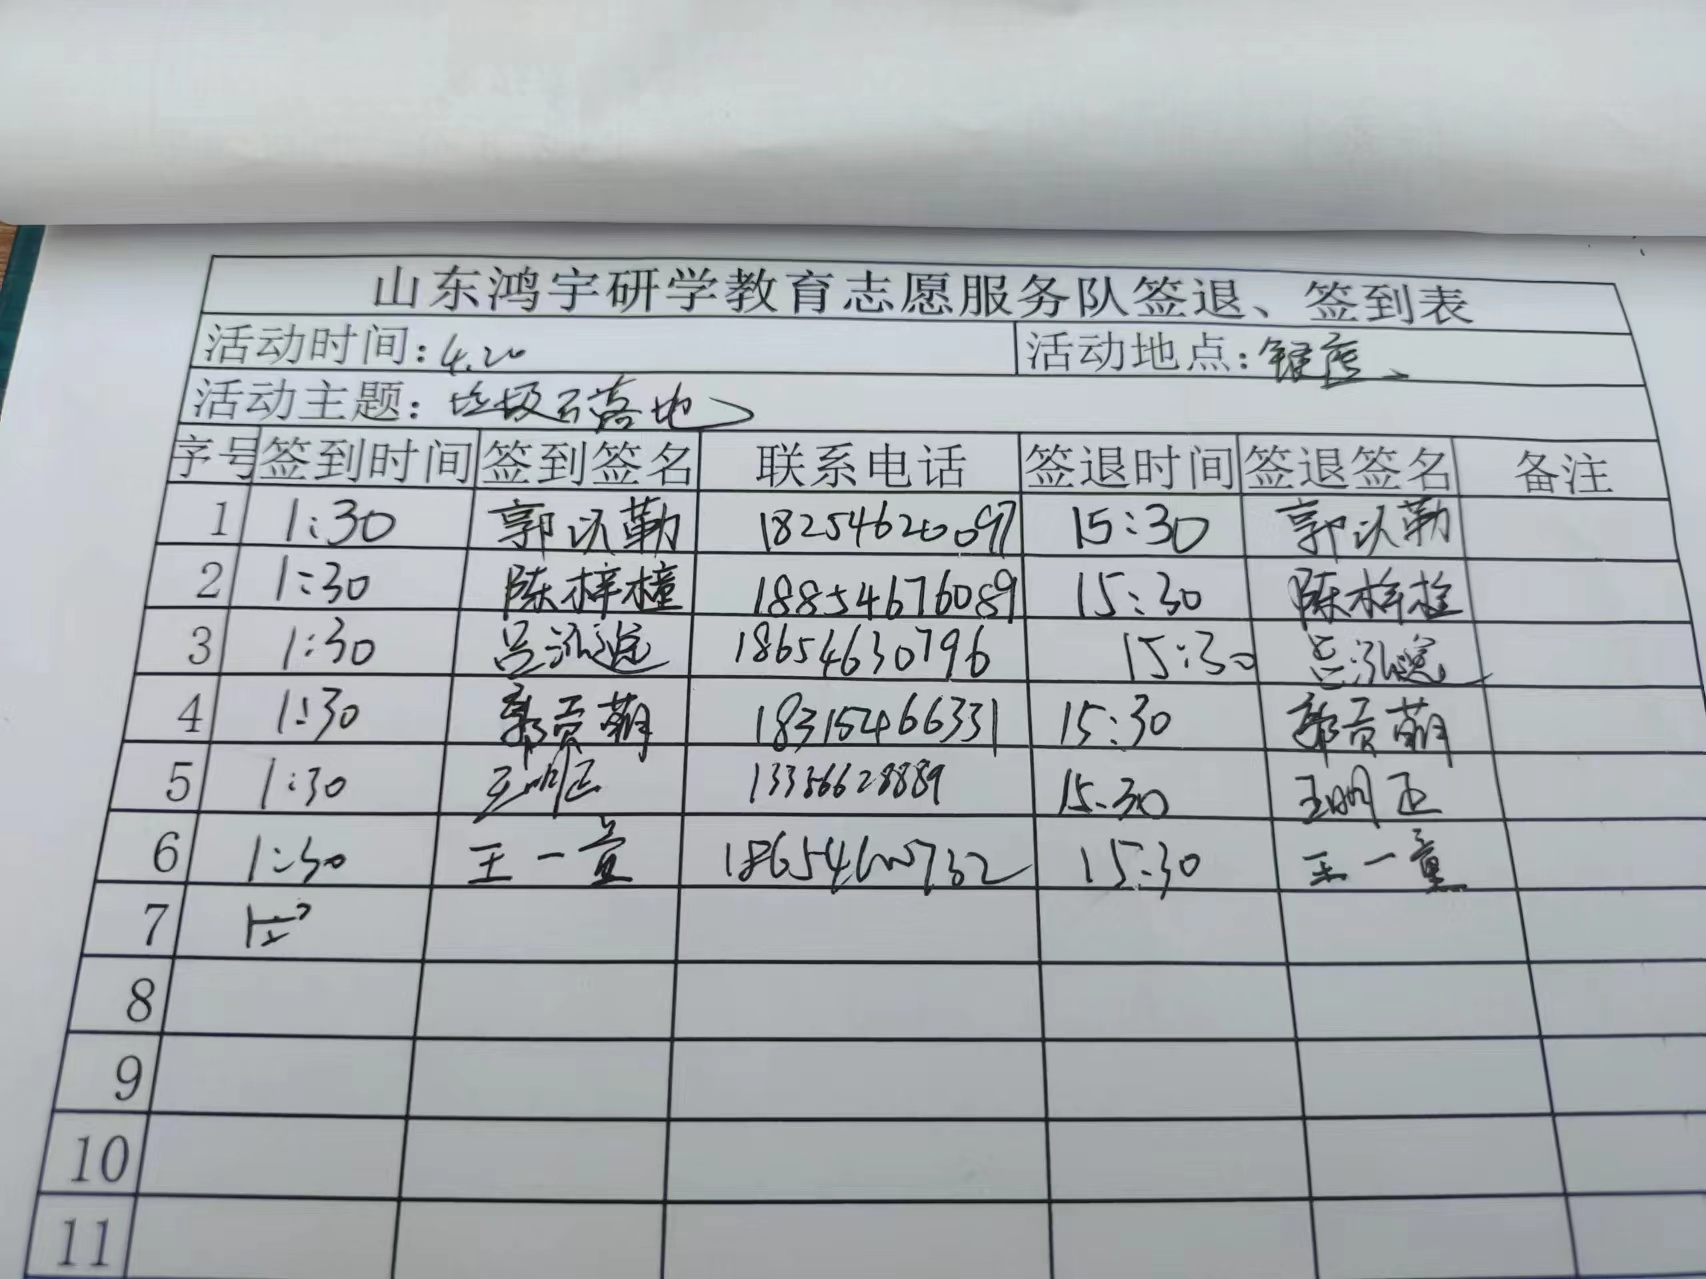 山东鸿宇研学教育志愿服务队签退、签到表
活动时间:4.20 活动地点:
活动主题:垃圾不落地
序号 签到时间 签到签名 联系电话 签退时间 签退签名 备注
1 1:30 郭以勒 18254620097 15:30 郭以勒
2 1:30 陈梓橦 18854676089 15:30 陈梓橦
3 1:30 吕泓逸 18654630796 15:30 吕泓逸
4 1:30 郭贡萌 18315466331 15:30 郭贡萌
5 1:30 王明正 13356628889 15:30 王明正
6 1:30 王一童 18654600732 15:30 王一童
7
8
9
10
11